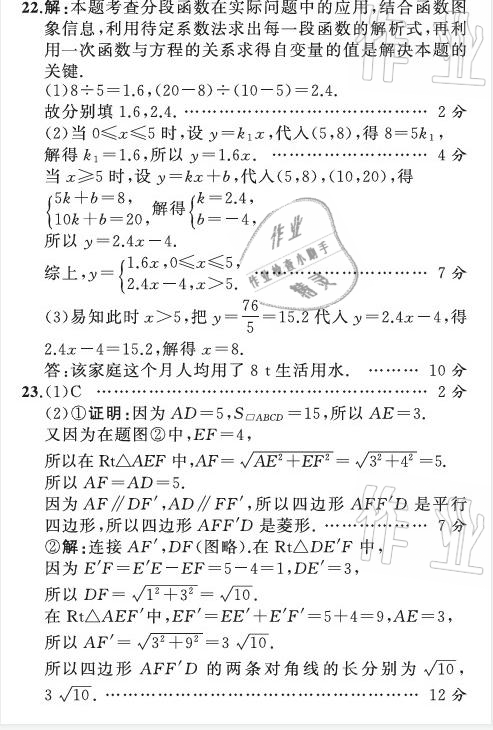 22.解:本题考查分段函数在实际问题中的应用,结合函数图
象信息,利用待定系数法求出每一段函数的解析式,再利
用一次函数与方程的关系求得自变量的值是解决本题的
关键.
(1)8÷5=1.6,(20-8)÷(10-5)=2.4.
故分别填 1.6,2.4. ………………………… 2 分
(2)当 0≤x≤5 时,设 y=k₁x,代入(5,8),得 8=5k₁,
解得 k₁=1.6,所以 y=1.6x. ………………… 4 分
当 x≥5 时,设 y=kx+b,代入(5,8),(10,20),得
{5k+b=8, 10k+b=20, 解得{k=2.4, b=-4,
所以 y=2.4x-4.
综上,y={1.6x,0≤x≤5, 2.4x-4,x>5. ………………… 7 分
(3)易知此时 x>5,把 y=76/5=15.2 代入 y=2.4x-4,得
2.4x-4=15.2,解得 x=8.
答:该家庭这个月人均用了 8 t 生活用水. ……… 10 分
23.(1)C ………………………………………… 2 分
(2)①证明:因为 AD=5,S▱ABCD=15,所以 AE=3.
又因为在题图②中,EF=4,
所以在 Rt△AEF 中,AF=√(AE²+EF²)=√(3²+4²)=5.
所以 AF=AD=5.
因为 AF∥DF′,AD∥FF′,所以四边形 AFF′D 是平行
四边形,所以四边形 AFF′D 是菱形. …………… 7 分
②解:连接 AF′,DF(图略).在 Rt△DE′F 中,
因为 E′F=E′E-EF=5-4=1,DE′=3,
所以 DF=√(1²+3²)=√10.
在 Rt△AEF′中,EF′=EE′+E′F′=5+4=9,AE=3,
所以 AF′=√(3²+9²)=3√10.
所以四边形 AFF′D 的两条对角线的长分别为 √10,
3√10. ……………………………………… 12 分
作业
作业检查小助手
精灵
作业
作业